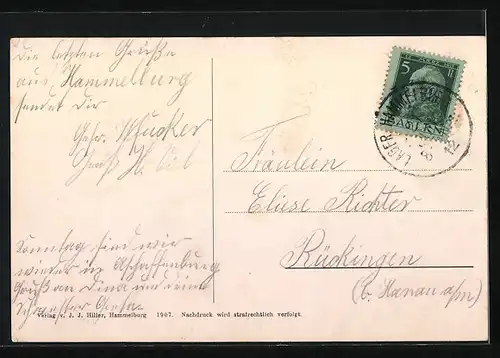 Die letzten Grüße
aus Hammelburg
sendet Dir
Sonntag sind wir
wieder in Aschaffenburg
Gruß an Dina und Deine
Schwester
Verlag v. J. J. Hiller, Hammelburg 1907. Nachdruck wird strafrechtlich verfolgt.
5
BAYERN
LAGER HAMMELBURG
12
Fräulein
Elise Richter
Rückingen
(b. Hanau a/m)